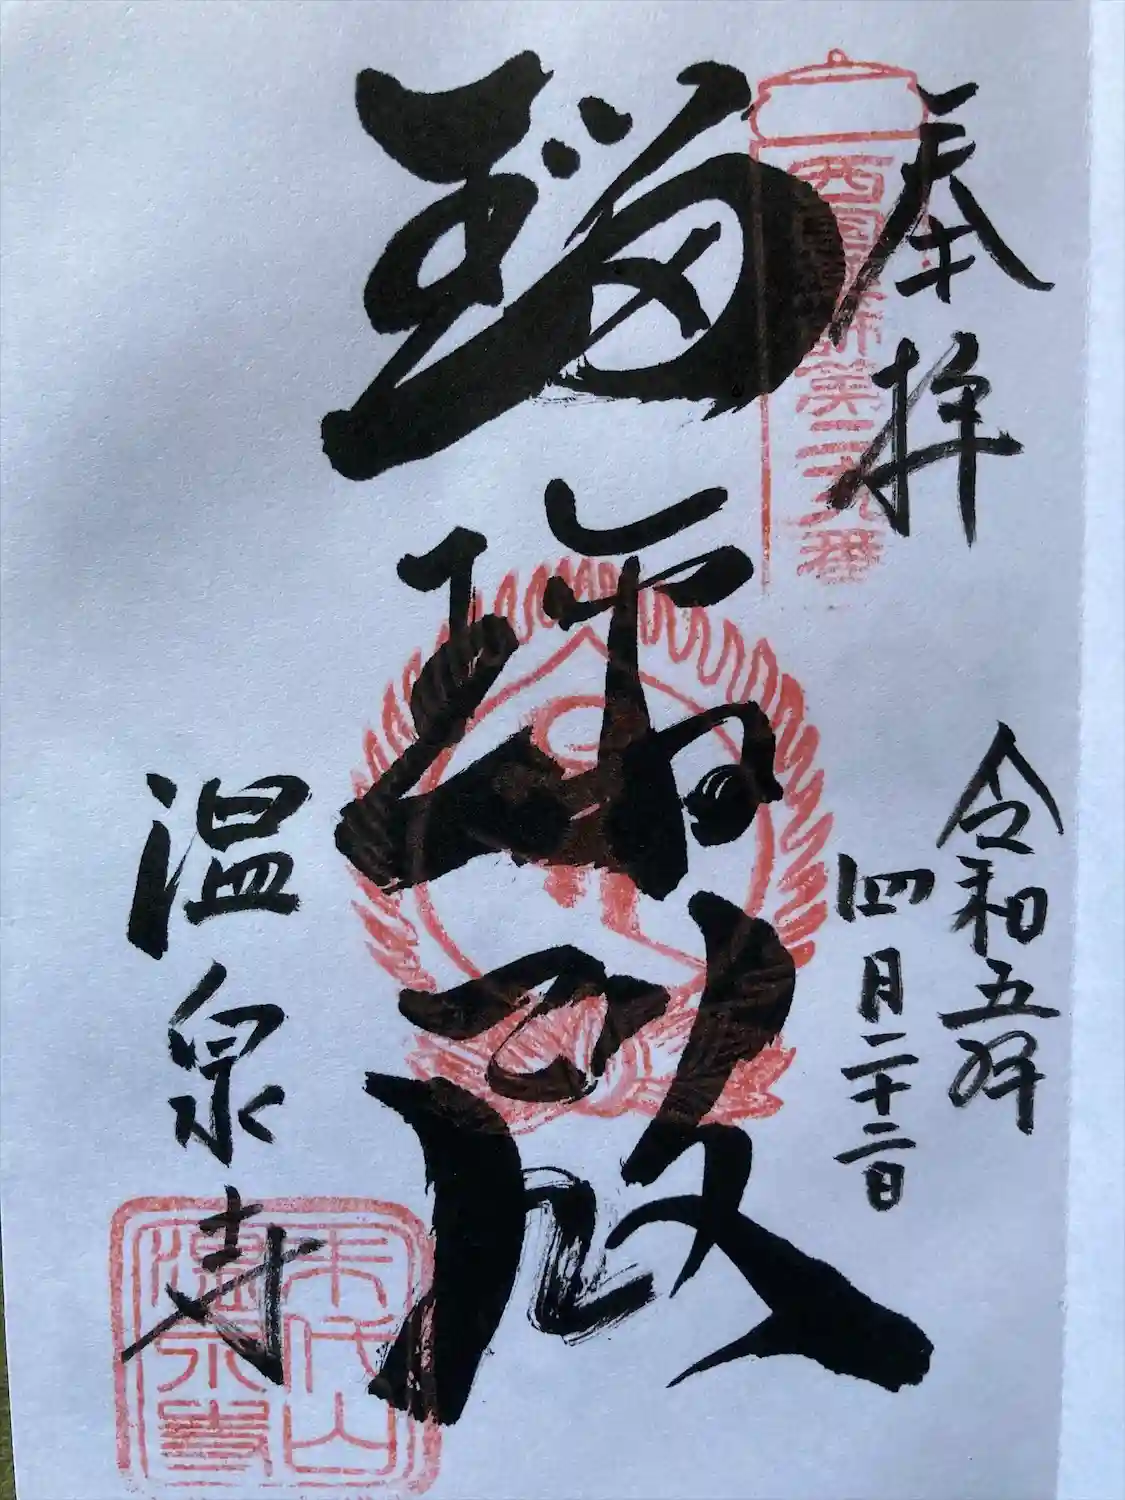 奉拝
西国薬師第二十九番
令和五年
四月二十二日
瑠璃殿
温泉寺
末代山
温泉寺